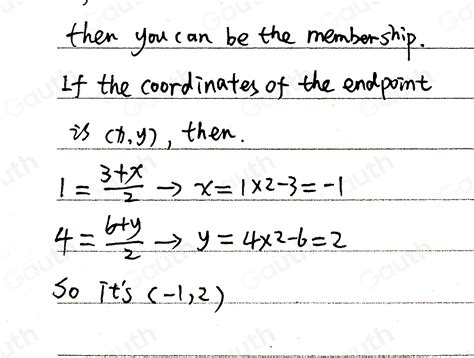 then you can be the membership.
If the coordinates of the endpoint
is (x,y), then.
1 = \frac{3+x}{2} → x = 1×2-3 = -1
4 = \frac{6+y}{2} → y = 4×2-6 = 2
So it's (-1,2)